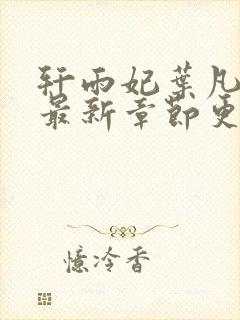 轩雨妃葉凡
最新章節更
憶冷香